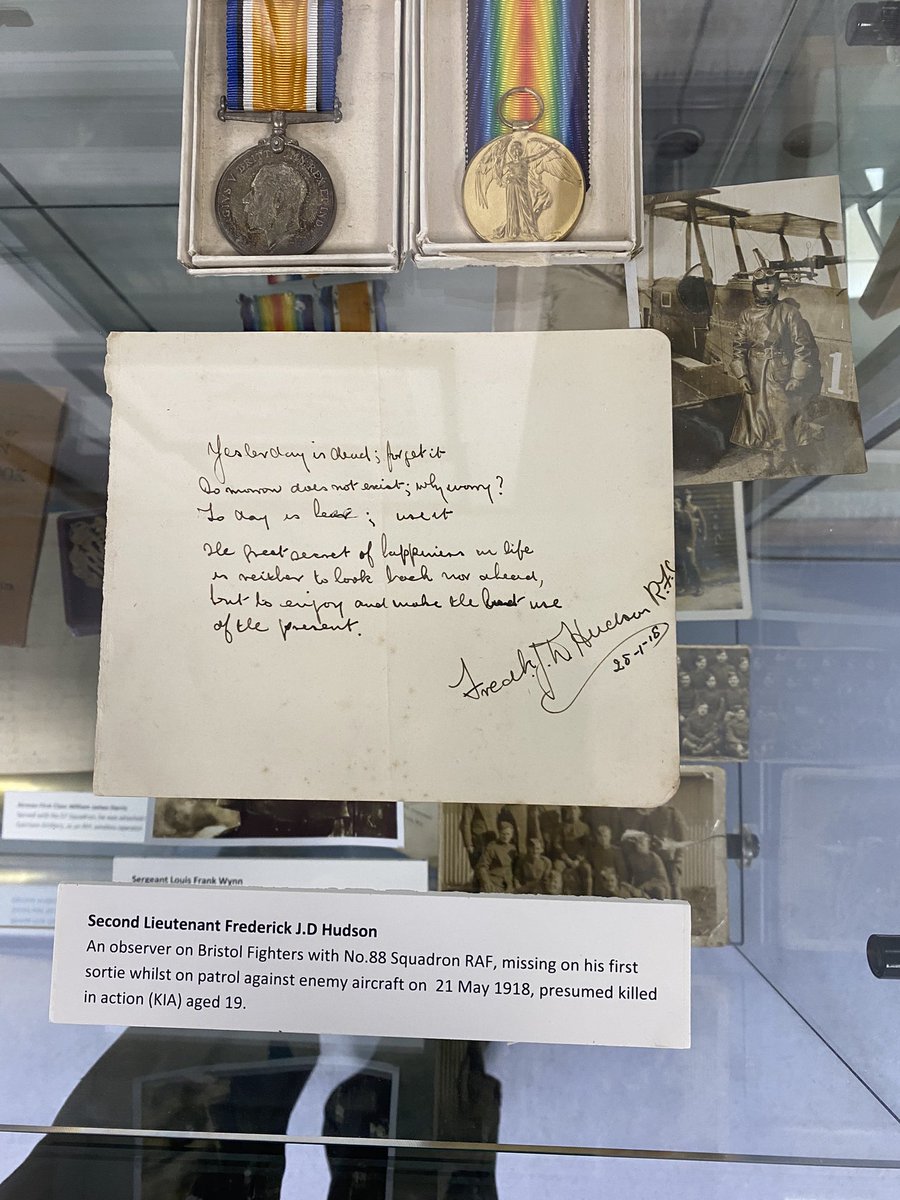 1
Yesterday is dead; forget it
To morrow does not exist; why worry?
To day is here; use it
The great secret of happiness in life
is neither to look back nor ahead,
but to enjoy and make the best use
of the present.
Fredk. J. D Hudson R.F.C
28-1-18
Sergeant Louis Frank Wynn
Second Lieutenant Frederick J.D Hudson
An observer on Bristol Fighters with No.88 Squadron RAF, missing on his first
sortie whilst on patrol against enemy aircraft on 21 May 1918, presumed killed
in action (KIA) aged 19.